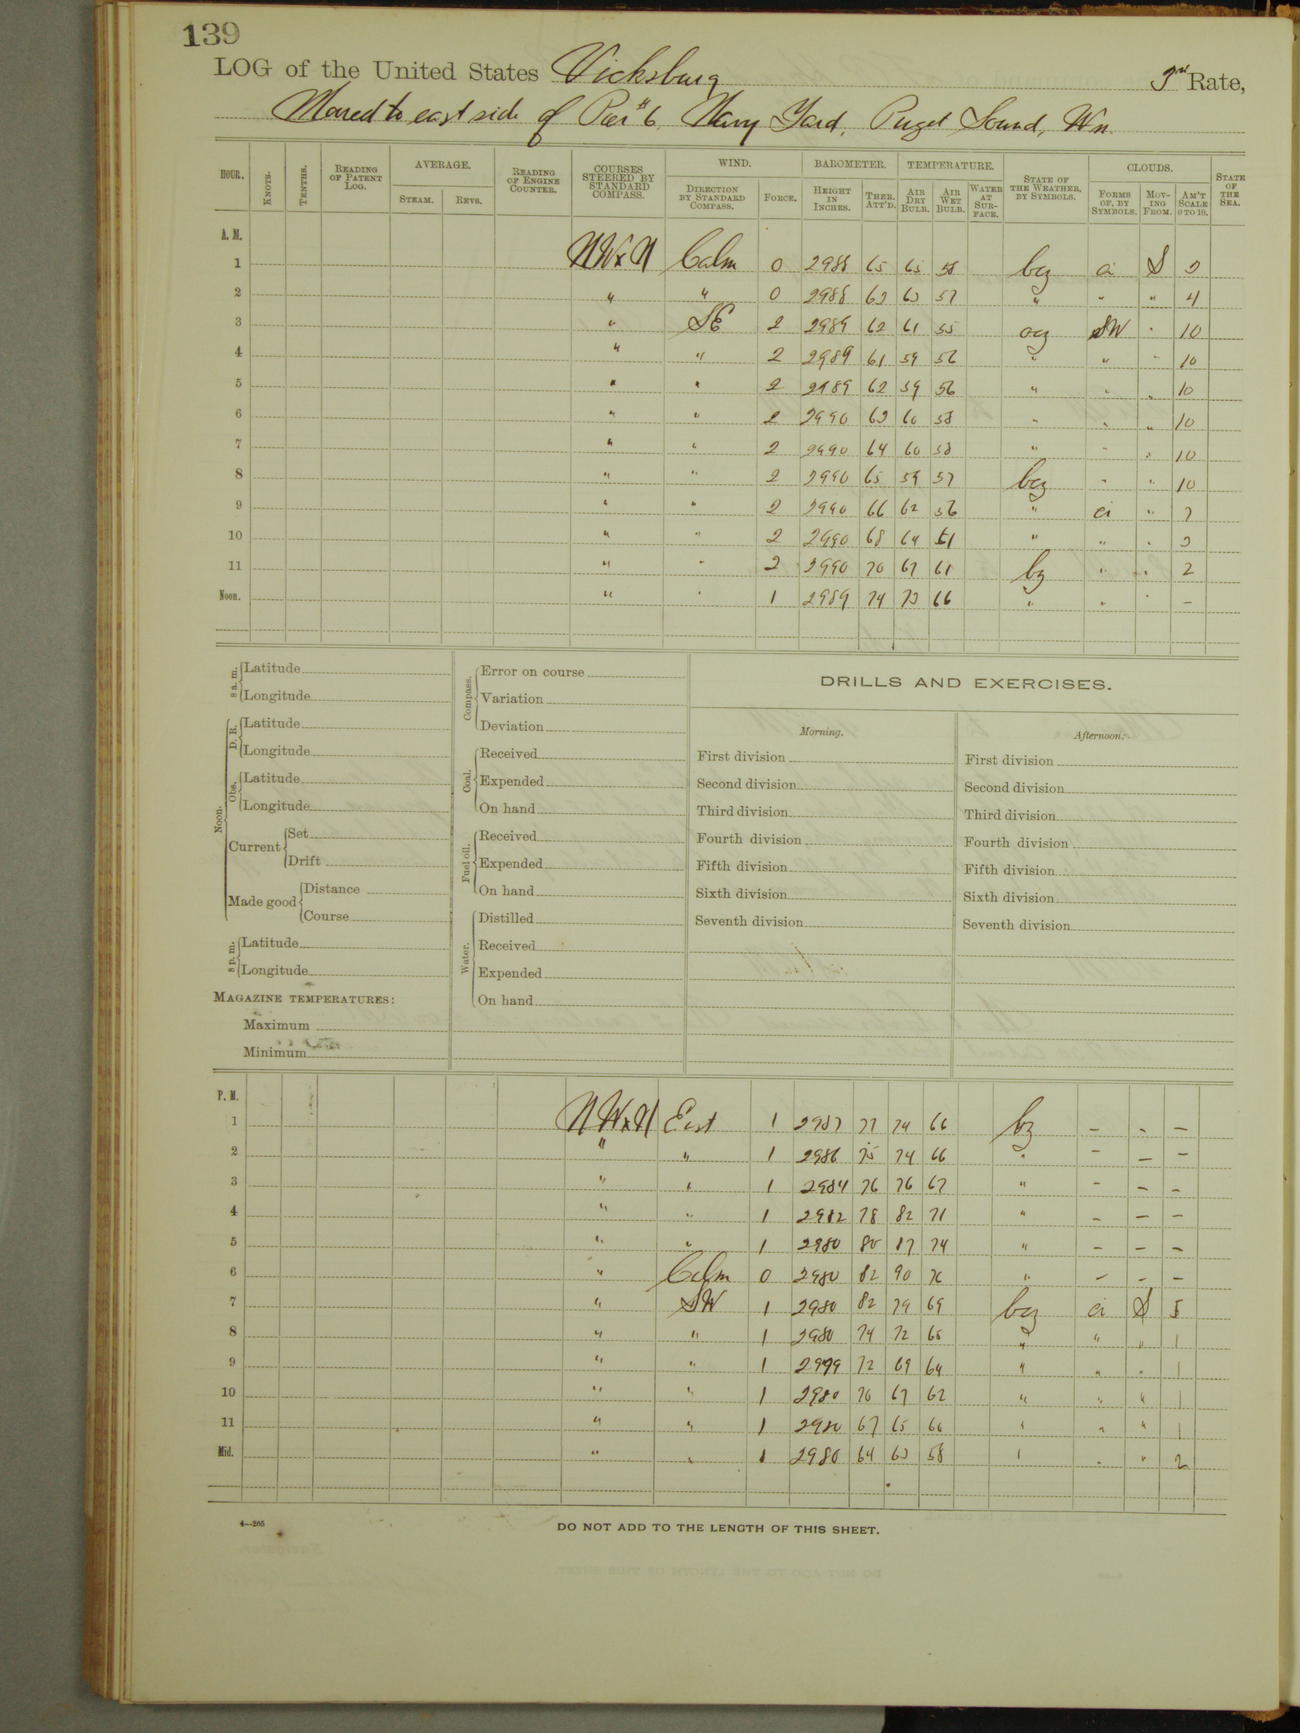 139
LOG of the United States Vicksburg 3rd Rate,
Moored to east side of Pier #6, Navy Yard, Puget Sound, Wn.
HOUR. KNOTS. TENTHS. READING OF PATENT LOG. AVERAGE. STEAM. REVS. READING OF ENGINE COUNTER. COURSES STEERED BY STANDARD COMPASS. WIND. DIRECTION BY STANDARD COMPASS. FORCE. BAROMETER. HEIGHT IN INCHES. THER. ATT'D. TEMPERATURE. AIR DRY BULB. AIR WET BULB. WATER AT SURFACE. STATE OF THE WEATHER, BY SYMBOLS. CLOUDS. FORMS OF, BY SYMBOLS. MOVING FROM. AM'T SCALE 0 TO 10. STATE OF THE SEA.
A. M.
1 NWxN Calm 0 2988 65 65 58 bcz ci S 3
2 " " 0 2988 63 63 57 " " " 4
3 " SE 2 2989 62 61 55 ocz " 10
4 " " 2 2989 61 59 56 " " " 10
5 " " 2 2989 62 59 56 " " " 10
6 " " 2 2990 63 60 58 " " " 10
7 " " 2 2990 64 60 58 " " " 10
8 " " 2 2990 65 59 57 bcz " " 10
9 " " 2 2990 66 62 56 " ci " 7
10 " " 2 2990 68 64 61 " " " 3
11 " " 2 2990 70 67 61 bz " " 2
Noon. " " 1 2989 74 73 66 " " " –
8 a. m. Latitude
Longitude
Noon.
D. R. Latitude
Longitude
Obs. Latitude
Longitude
Current Set
Drift
Made good Distance
Course
8 p. m. Latitude
Longitude
MAGAZINE TEMPERATURES:
Maximum
Minimum
Compass. Error on course
Variation
Deviation
Coal. Received
Expended
On hand
Fuel oil. Received
Expended
On hand
Water. Distilled
Received
Expended
On hand
DRILLS AND EXERCISES.
Morning.
First division
Second division
Third division
Fourth division
Fifth division
Sixth division
Seventh division
Afternoon.
First division
Second division
Third division
Fourth division
Fifth division
Sixth division
Seventh division
P. M.
1 NWxN East 1 2987 77 74 66 bz – - –
2 " " 1 2986 75 74 66 " – – –
3 " " 1 2984 76 76 67 " – – –
4 " " 1 2982 78 82 71 " – – –
5 " " 1 2980 80 87 74 " – – –
6 " Calm 0 2980 82 90 76 " – – –
7 " SW 1 2980 82 79 69 bcz ci S 5
8 " " 1 2980 74 72 65 " " " 1
9 " " 1 2979 72 69 64 " " " 1
10 " " 1 2980 70 67 62 " " " 1
11 " " 1 2980 67 65 60 " " " 1
Mid. " " 1 2980 64 63 58 " " " 2
4—265
DO NOT ADD TO THE LENGTH OF THIS SHEET.